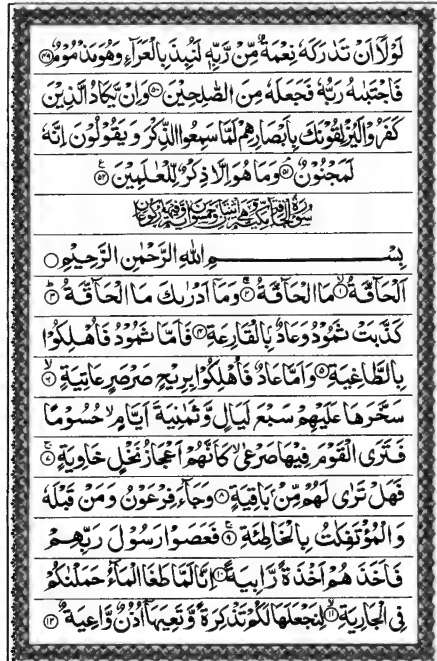 لَوْلَاۤ اَنْ تَدٰرَكَهٗ نِعْمَةٌ مِّنْ رَّبِّهٖ لَنُبِذَ بِالْعَرَآءِ وَهُوَ مَذْمُوْمٌ ۴۹
فَاجْتَبٰىهُ رَبُّهٗ فَجَعَلَهٗ مِنَ الصّٰلِحِيْنَ ۵۰ وَاِنْ يَّكَادُ الَّذِيْنَ
كَفَرُوْا لَيُزْلِقُوْنَكَ بِاَبْصَارِهِمْ لَمَّا سَمِعُوا الذِّكْرَ وَيَقُوْلُوْنَ اِنَّهٗ
لَمَجْنُوْنٌ ۵۱ وَمَا هُوَ اِلَّا ذِكْرٌ لِّلْعٰلَمِيْنَ ۵۲
بِسْمِ اللّٰهِ الرَّحْمٰنِ الرَّحِيْمِ
اَلْحَآقَّةُ ۱ مَا الْحَآقَّةُ ۲ وَمَاۤ اَدْرٰىكَ مَا الْحَآقَّةُ ۳
كَذَّبَتْ ثَمُوْدُ وَعَادٌۢ بِالْقَارِعَةِ ۴ فَاَمَّا ثَمُوْدُ فَاُهْلِكُوْا
بِالطَّاغِيَةِ ۵ وَاَمَّا عَادٌ فَاُهْلِكُوْا بِرِيْحٍ صَرْصَرٍ عَاتِيَةٍ ۶
سَخَّرَهَا عَلَيْهِمْ سَبْعَ لَيَالٍ وَّثَمٰنِيَةَ اَيَّامٍ حُسُوْمًا
فَتَرَى الْقَوْمَ فِيْهَا صَرْعٰى كَاَنَّهُمْ اَعْجَازُ نَخْلٍ خَاوِيَةٍ ۷
فَهَلْ تَرٰى لَهُمْ مِّنْۢ بَاقِيَةٍ ۸ وَجَآءَ فِرْعَوْنُ وَمَنْ قَبْلَهٗ
وَالْمُؤْتَفِكٰتُ بِالْخَاطِئَةِ ۹ فَعَصَوْا رَسُوْلَ رَبِّهِمْ
فَاَخَذَهُمْ اَخْذَةً رَّابِيَةً ۱۰ اِنَّا لَمَّا طَغَا الْمَآءُ حَمَلْنٰكُمْ
فِى الْجَارِيَةِ ۱۱ لِنَجْعَلَهَا لَكُمْ تَذْكِرَةً وَّتَعِيَهَاۤ اُذُنٌ وَّاعِيَةٌ ۱۲